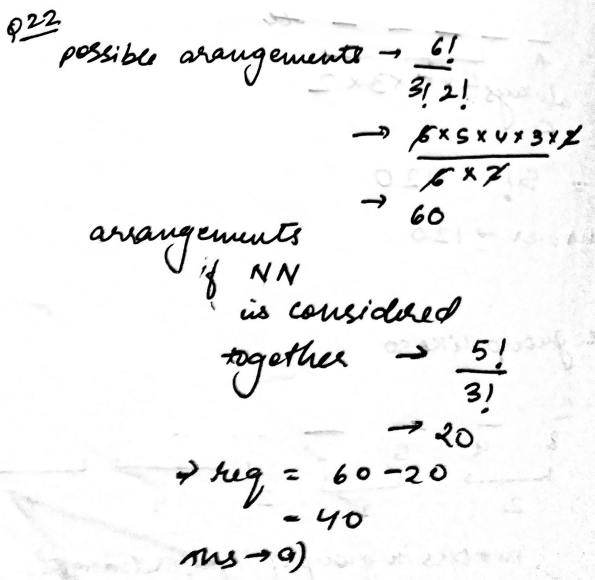 Q22
possible arangements → 6!
3! 2!
→ 6×5×4×3×2
6×2
→ 60
arrangements
if NN
is considered
together → 5!
3!
→ 20
→ req = 60-20
= 40
Ans → a)